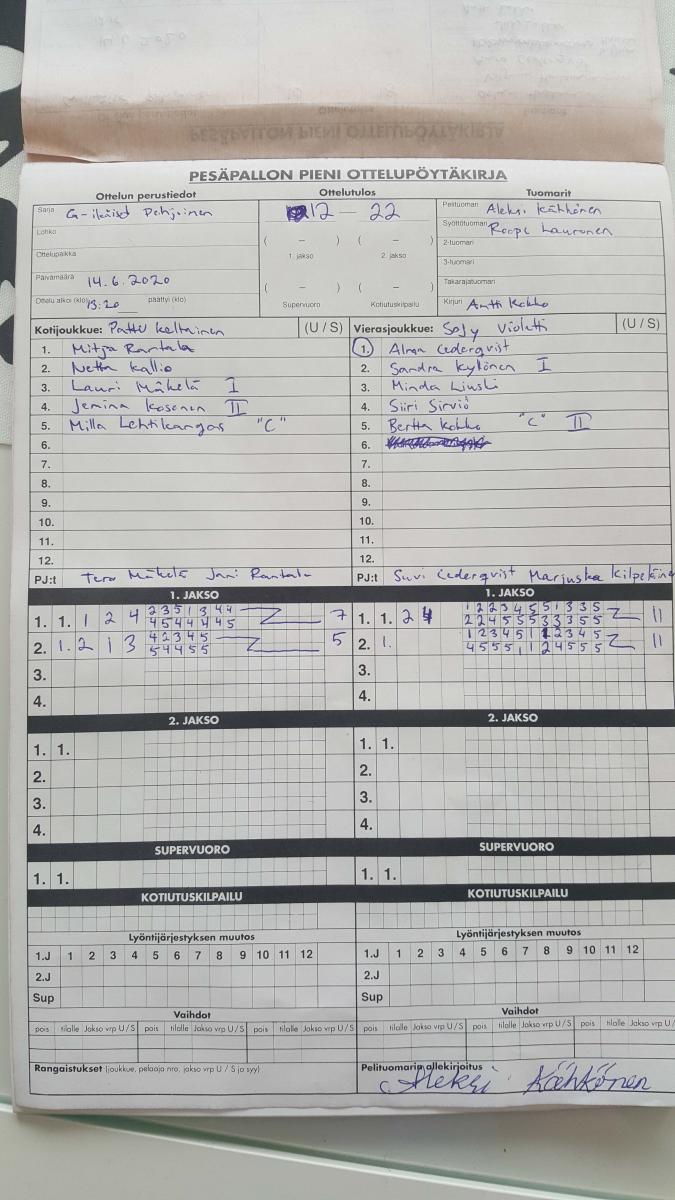 PESÄPALLON PIENI OTTELUPÖYTÄKIRJA
Ottelun perustiedot
Sarja G-ikäiset Pohjoinen
Lohko
Ottelupaikka
Päivämäärä 14.6.2020
Ottelu alkoi (klo) 13:20 päättyi (klo)
Ottelutulos
12 — 22
( – ) ( – )
1. jakso 2. jakso
( – ) ( – )
Supervuoro Kotiutuskilpailu
Tuomarit
Pelituomari Aleksi Kähkönen
Syöttötuomari Roope Lauronen
2-tuomari
3-tuomari
Takarajatuomari
Kirjuri Antti Kokko
Kotijoukkue: Pattu Keltainen (U / S)
1. Mitja Rantala
2. Netta Kallio
3. Lauri Mäkelä I
4. Jemina Kosonen II
5. Milla Lehtikangas "C"
6.
7.
8.
9.
10.
11.
12.
PJ:t Tero Mäkelä Jani Rantala
Vierasjoukkue: SoJy Violetti (U / S)
1. Alma Cederqvist
2. Sandra Kylönen I
3. Minda Liuski
4. Siiri Sirviö
5. Bertta Kokko "C" II
6.
7.
8.
9.
10.
11.
12.
PJ:t Suvi Cederqvist Marjuska Kilpeläinen
1. JAKSO
1. 1. 1 2 4 2 3 5 1 3 4 4 7
4 5 4 4 4 4 5
2. 1. 2 1 3 4 2 3 4 5 5
5 4 4 5 5
3.
4.
1. JAKSO
1. 1. 2 4 1 2 2 3 4 5 5 1 3 3 5 11
2 2 4 5 5 5 3 3 3 5 5
2. 1. 1 2 3 4 5 1 2 3 4 5 11
4 5 5 5 1 1 2 4 5 5 5
3.
4.
2. JAKSO
1. 1.
2.
3.
4.
2. JAKSO
1. 1.
2.
3.
4.
SUPERVUORO
1. 1.
SUPERVUORO
1. 1.
KOTIUTUSKILPAILU
KOTIUTUSKILPAILU
Lyöntijärjestyksen muutos
1.J 1 2 3 4 5 6 7 8 9 10 11 12
2.J
Sup
Lyöntijärjestyksen muutos
1.J 1 2 3 4 5 6 7 8 9 10 11 12
2.J
Sup
Vaihdot
pois tilalle Jakso vrp U / S pois tilalle Jakso vrp U / S pois tilalle Jakso vrp U / S
Vaihdot
pois tilalle Jakso vrp U / S pois tilalle Jakso vrp U / S pois tilalle Jakso vrp U
Rangaistukset (joukkue, pelaaja nro, jakso vrp U / S ja syy)
Pelituomarin allekirjoitus
Aleksi Kähkönen